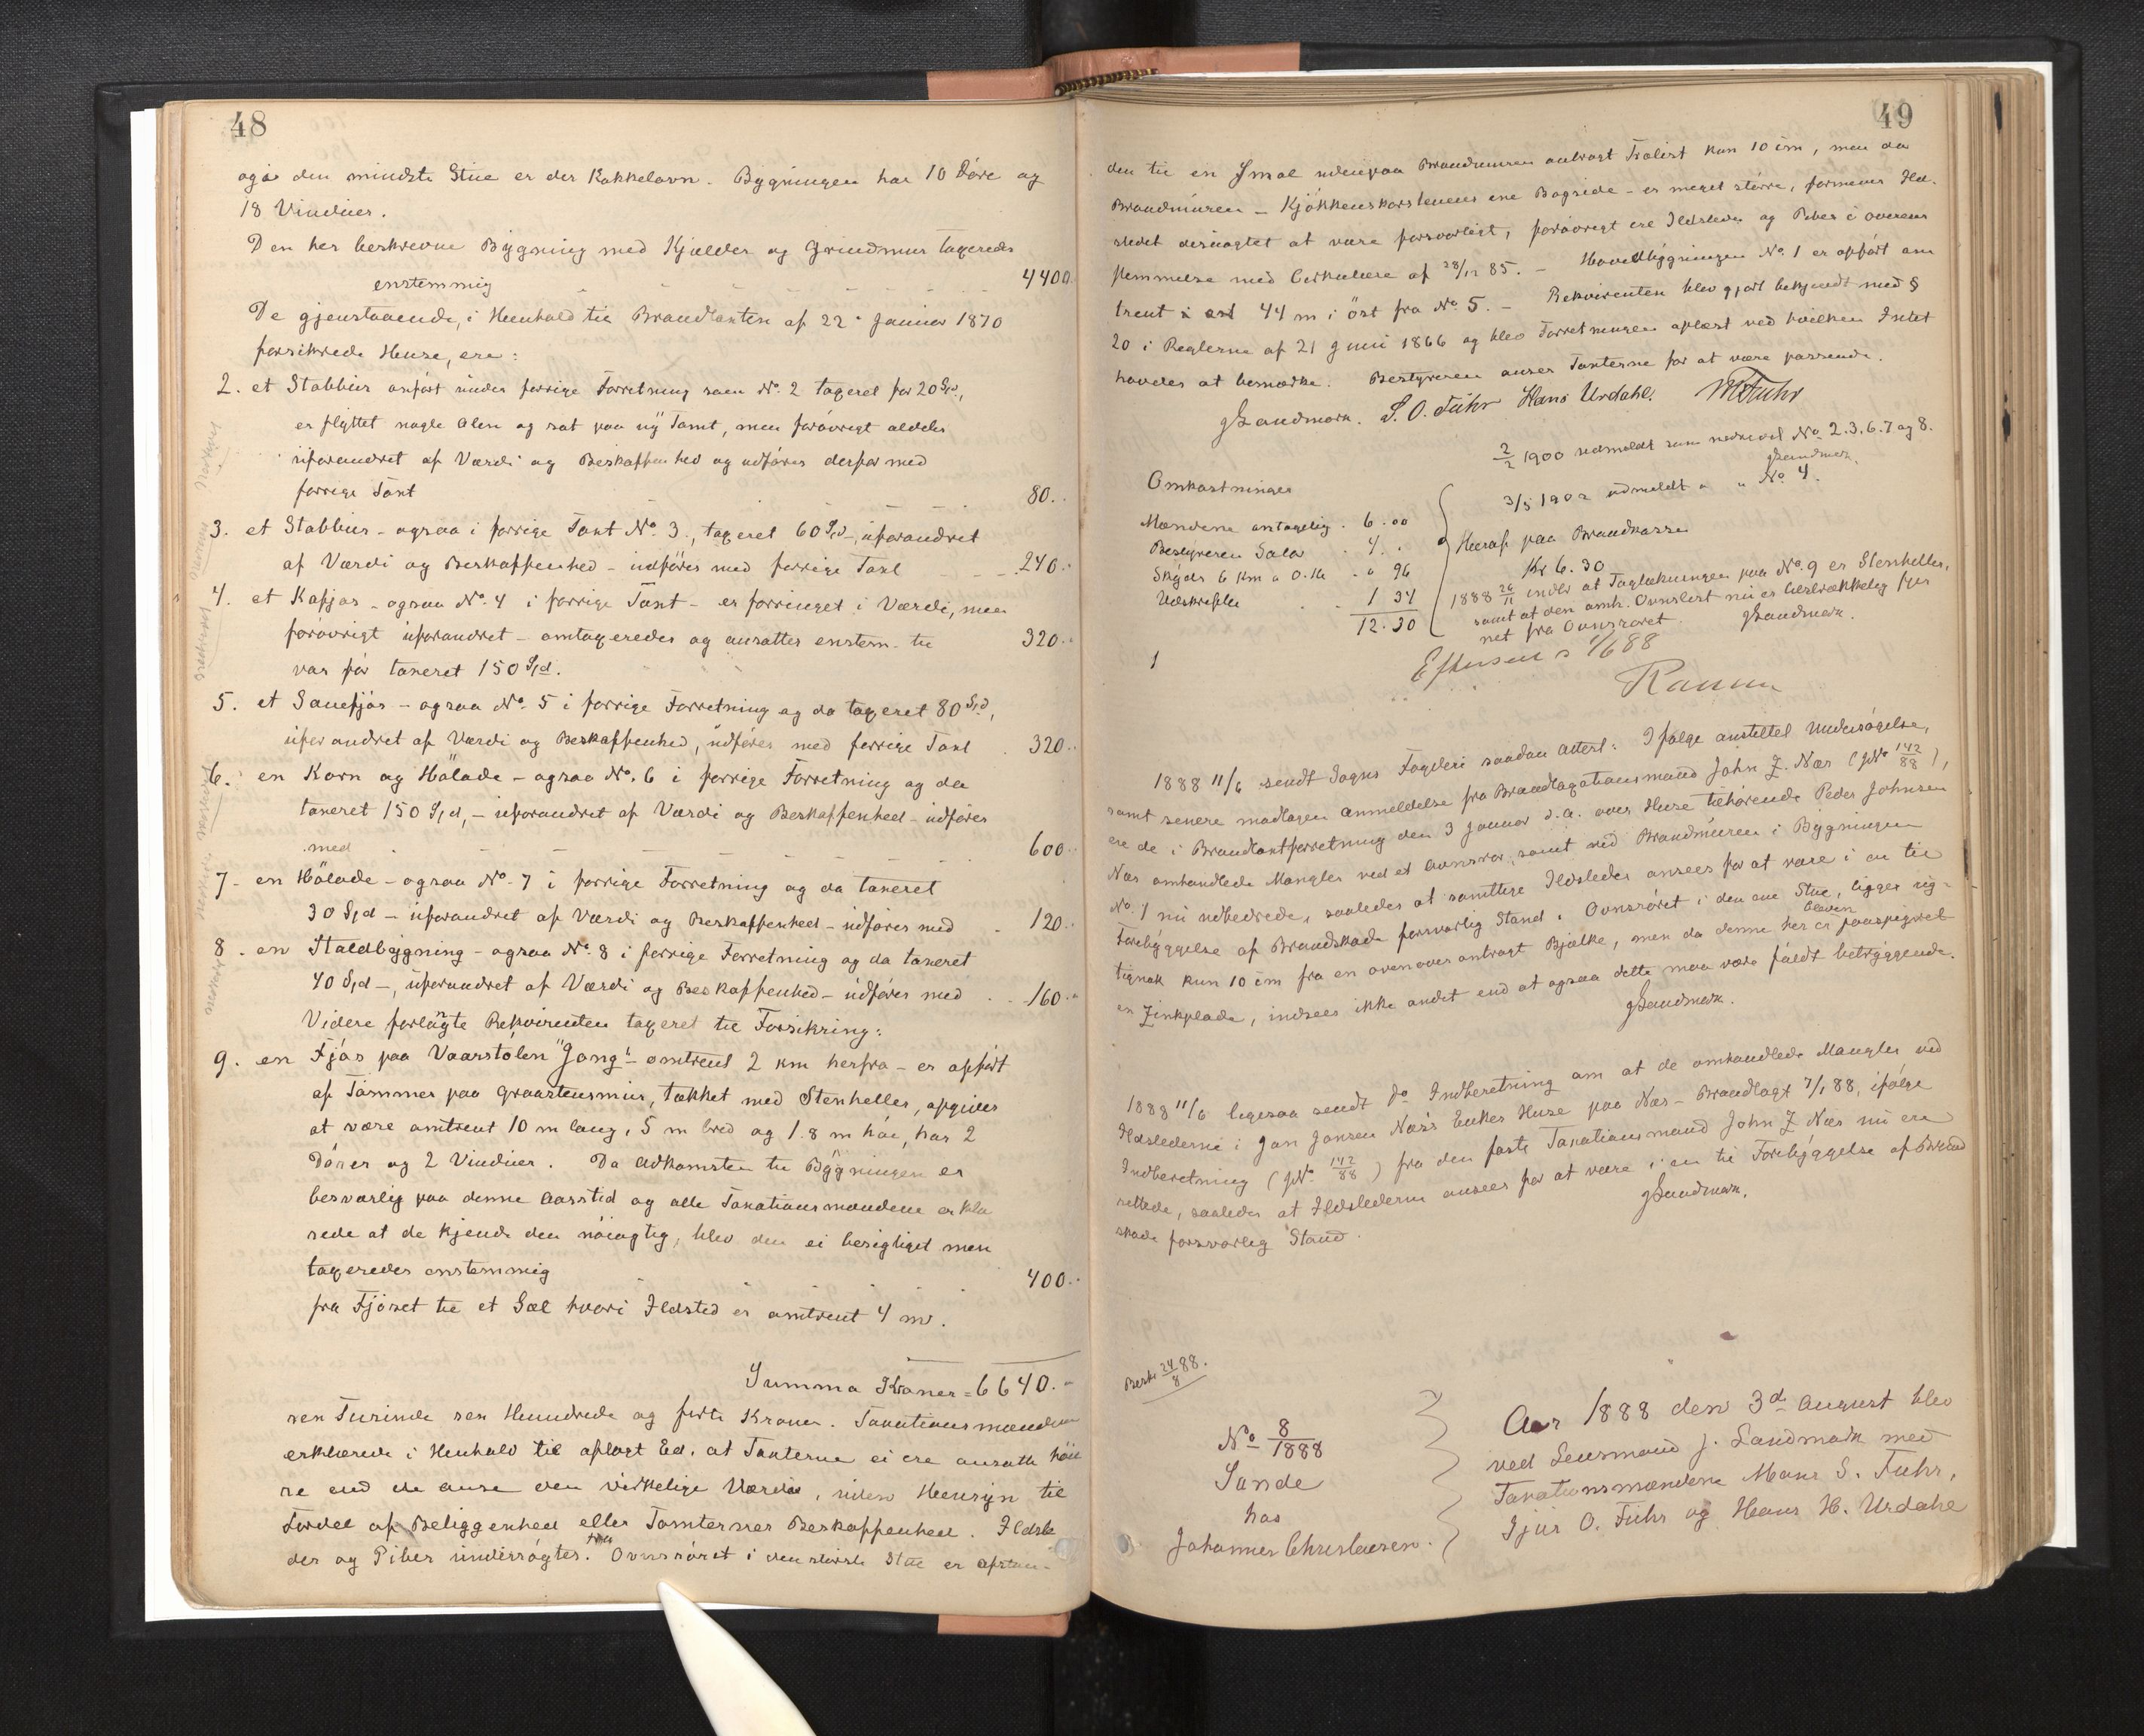 48
og i den mindste Stue er der Kakkelovn. Bygningen har 10 Döre og
18 Vinduer.
Den her beskrevne Bygning med Kjælder og Grundmur taxeredes
enstemmig 4400
De gjenstaaende, i Henhold til Brandtaxten af 22. Januar 1870
forsikrede Huse, ere:
2. et Stabbur anfört under forrige Forretning som No. 2 taxeret for 20 Spd.,
er flyttet nogle Alen og sat paa ny Tomt, men forövrigt aldeles
uforandret af Værdi og Beskaffenhed og udföres derfor med
forrige Taxt 80.
3. et Stabbur - ogsaa i forrige Taxt No. 3., taxeret 60 Spd, uforandret
af Værdi og Beskaffenhed - udföres med forrige Taxt 240.
4. et Kofjøs - ogsaa No. 4 i forrige Taxt - er forringet i Værdi, men
forövrigt uforandret - omtaxeredes og ansattes enstem. til 320.
var för taxeret 150 Spd.
5. et Sauefjøs - ogsaa No. 5 i forrige Forretning og da taxeret 80 Spd,
uforandret af Værdi og Beskaffenhed, udföres med forrige Taxt 320.
6. en Korn og Hölade - ogsaa No. 6 i forrige Forretning og da
taxeret 150 Spd, - uforandret af Værdi og Beskaffenhed - udföres
med 600
7. en Hölade - ogsaa No. 7 i forrige Forretning og da taxeret
30 Spd - uforandret af Værdi og Beskaffenhed - udföres med 120.
8. en Staldbygning - ogsaa No. 8 i forrige Forretning og da taxeret
40 Spd -, uforandret af Værdi og Beskaffenhed - udföres med 160.
Videre forlangte Rekvirenten taxeret til Forsikring:
9. en Fjøs paa Vaarstölen "Jong" - omtrent 2 km herfra - er opfört
af Tømmer paa Graastensmur, tækket med Stenheller, opgives
at være omtrent 10 m lang, 5 m bred og 1.8 m höi, har 2
Dörer og 2 Vinduer. Da Adkomsten til Bygningen er
besværlig paa denne Aarstid og alle Taxationsmændene erklæ
rede at de kjende den nöiagtig, blev den ei besigtiget men
taxeredes enstemmig 400.
fra Fjøset til et Sæl hvori Ildsted er omtrent 4 m.
Summa Kroner = 6640.
sex Tusinde sex Hundrede og firti Kroner. Taxationsmændene
erklærede i Henhold til aflagt Ed, at Taxterne ei ere ansatte höie
re end de anse den virkelige Værdi, uden Hensyn til
Fordel af Beliggenhed eller Tomternes Beskaffenhed. Ildste
der og Piber undersögtes. Fra Ovnsröret i den störste Stue er afstan-
49
den til en Smal udenpaa Brandmuren anbragt Trælist kun 10 cm, men da
Brandmuren - Kjökkenskorstenens ene Bagside - er meget större, formenes Ild-
stedet desuagtet at være forsvarligt, forövrigt ere Ildsteder og Piber i overens
stemmelse med Cirkulære af 28/12 85. - Hovedbygningen No. 1 er opfört om
trent 44 m i öst fra No. 5. - Rekvirenten blev gjort bekjendt med §
20 i Reglerne af 21 Juni 1866 og blev Forretningen oplæst ved hvilken Intet
havdes at bemærke. Bestyreren anser Taxterne for at være passende.
JLandmark. S. O. Fuhr Hans Urdahl. MSFuhr
2/2 1900 udmeldt som nedrevet No. 2.3.6.7 og 8.
JLandmark.
3/5 1902 udmeldt " " No. 4.
Omkostninger
Mændene antagelig. 6.00
Bestyreren Salar 4.
Skyds 6 Km a 0.16 " 96
Udskrifter 1 34
12.30
Heraf paa Brandkassen
Kr 6.30
1888 26/11 indb. at Taglækningen paa No. 9 er Stenheller,
samt at den omh. Ovnslist nu er tilstrækkelig fjer
net fra Ovnsröret. JLandmark.
1/6 88
1888 11/6 sendt Sogns Fogderi saadan Attest: Ifölge anstillet Undersögelse,
samt senere modtagen Anmeldelse fra Brandtaxationsmand John Z. Næs (JNo 142/88),
ere de i Brandtaxtforretning den 3 Januar d.a. over Huse tilhörende Peder Johnsen
Næs omhandlede Mangler ved et Ovnsrør, samt ved Brandmuren i Bygningen
No. 1 nu udbedrede, saaledes at samtlige Ildsteder ansees for at være i en til
Forebyggelse af Brandskade forsvarlig Stand. Ovnsröret i den ene Stue, ligger rig-
tignok kun 10 cm fra en ovenover anbragt Bjelke, men da denne her er bleven paaspigret
en Zinkplade, indsees ikke andet end at ogsaa dette maa være fuldt betryggende.
JLandmark.
1888 11/6 ligesaa sendt Do Indberetning om at de omhandlede Mangler ved
Ildstederne i Jan Jansen Næs's Enkes Huse paa Næs - Brandtaxt 7/1 88, ifölge
Indberetning (JNo. 142/88) fra den faste Taxationsmand John Z Næs nu ere
rettede, saaledes at Ildstederne ansees for at være i en til Forebyggelse af Brand
skade forsvarlig Stand.
JLandmark.
Besk. 24/8 88.
No 8/1888
Sande
hos
Johannes Christensen.
Aar 1888 den 3d August blev
ved Lensmand J. Landmark med
Taxationsmændene Mons S. Fuhr,
Sjur O. Fuhr og Hans H. Urdahl